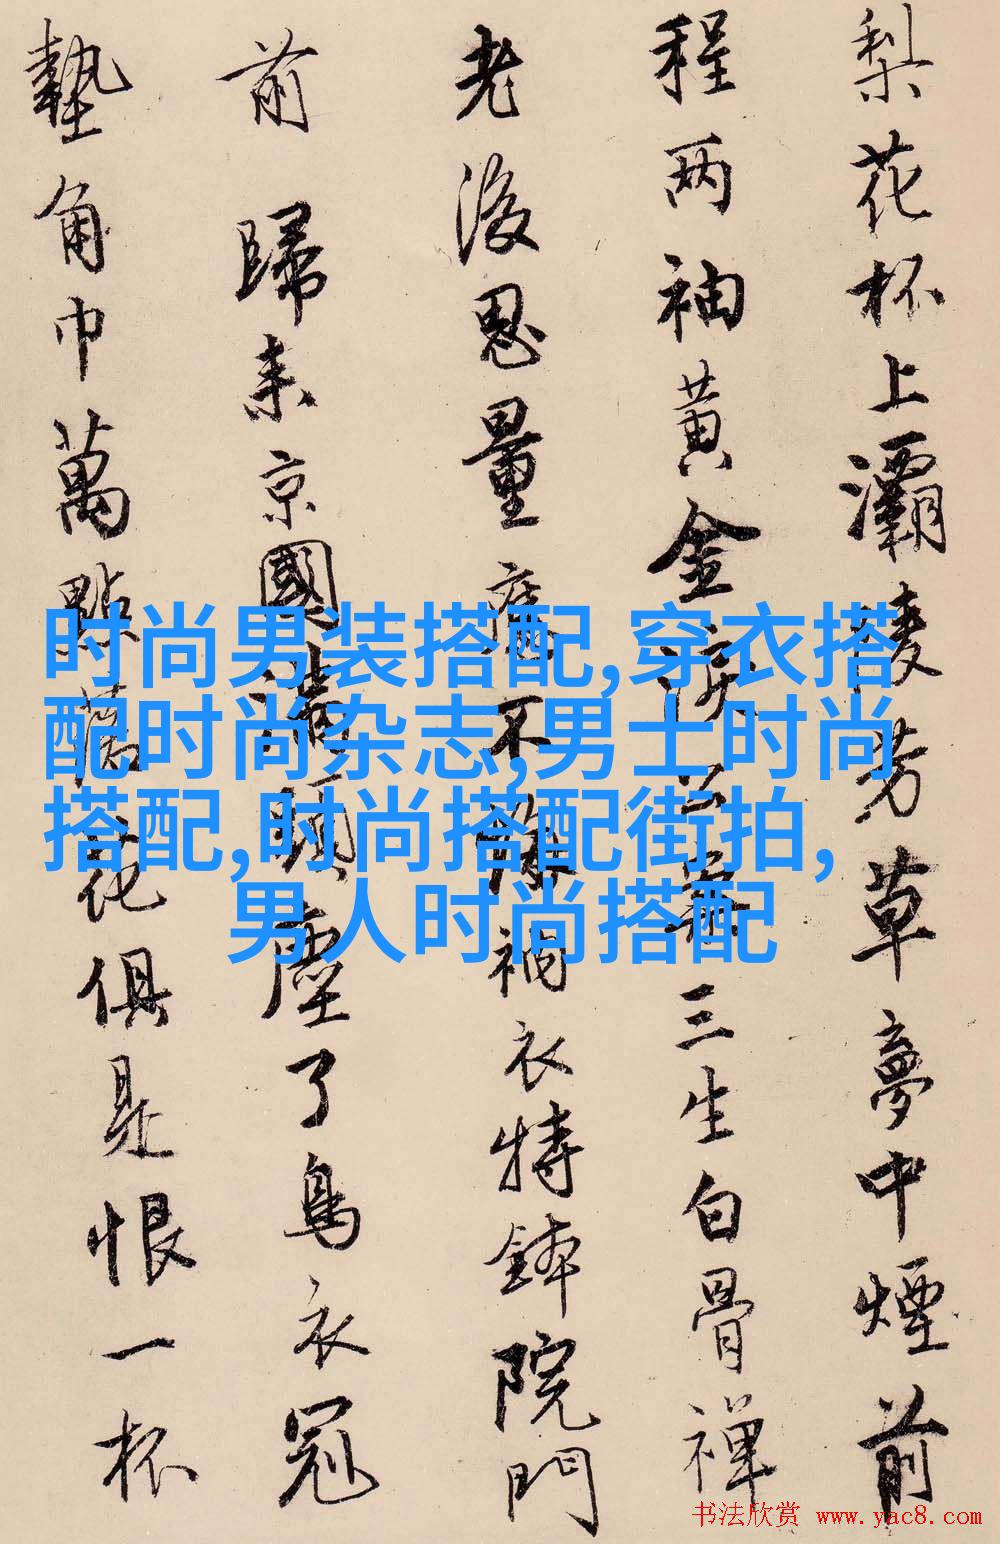 梨花杯上灞陵芳草夢中煙前
程两袖黄金淚公案三生白骨禪
老後思量應不悔衲衣持鉢院門
前 歸来京國塵了烏衣冠
墊角巾萬點落花俱是恨一杯
时尚男装搭配,穿衣搭
配时尚杂志,男士时尚
搭配,时尚搭配街拍,
男人时尚搭配
书法欣赏 www.yac8.com